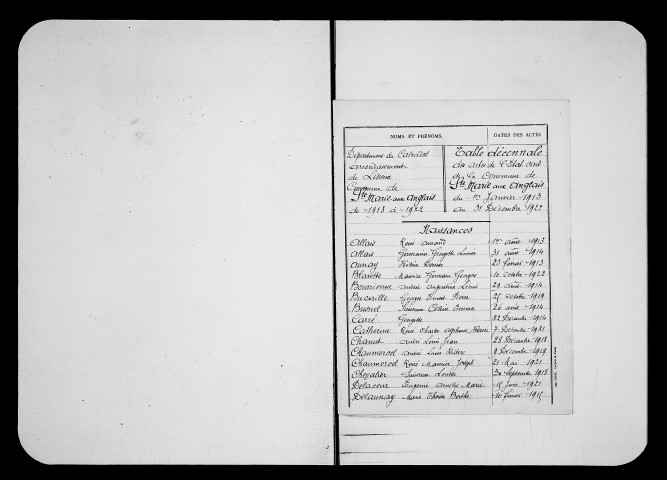 NOMS ET PRÉNOMS DATES DES ACTES
Département du Calvados
arrondissement
de Lisieux
Commune de
Ste Marie aux Anglais
de 1913 à 1922
Table décennale
des actes de l'État civil
de la Commune de
Ste Marie aux Anglais
du 1er Janvier 1913
au 31 Décembre 1922
Naissances
Allais René 1913
Allais Germaine Georgette Louise 31 août 1914
Aunay Louise 23 février 1913
Blavette Maurice Germain Georges 10 octobre 1922
Augustine 29 août 1914
Bucaille Georges Ernest Pierre 25 octobre 1919
Busnel Céline Emma 26 août 1914
Carré Georgette 22 Décembre 1914
Catherine René Charles Alphonse 7 Décembre 1921
André Louis Jean 28 Décembre 1918
Chaumercel André Louis 9 Décembre 1919
Chaumercel René Maurice Joseph 21 Mai 1921
Chevalier Louise 30 Septembre 1918
Delacour Eugénie Marie Juin 1921
Delaunay Marie Berthe 10 février